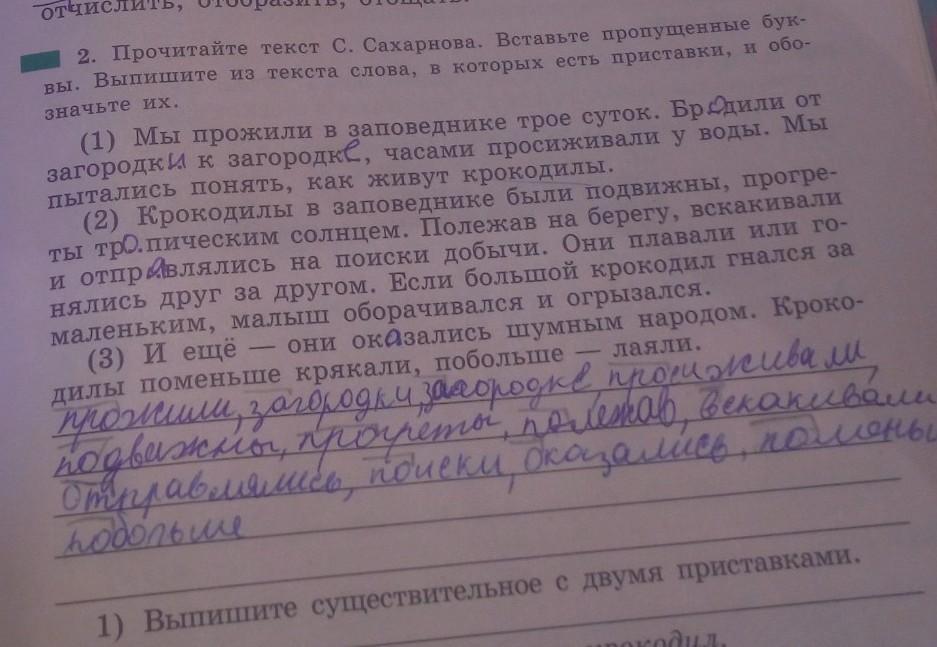 отчислить, отобразить, отощать.
2. Прочитайте текст С. Сахарнова. Вставьте пропущенные бук-
вы. Выпишите из текста слова, в которых есть приставки, и обо-
значьте их.
(1) Мы прожили в заповеднике трое суток. Бродили от
загородки к загородке, часами просиживали у воды. Мы
пытались понять, как живут крокодилы.
(2) Крокодилы в заповеднике были подвижны, прогре-
ты тро.пическим солнцем. Полежав на берегу, вскакивали
и отправлялись на поиски добычи. Они плавали или го-
нялись друг за другом. Если большой крокодил гнался за
маленьким, малыш оборачивался и огрызался.
(3) И ещё — они оказались шумным народом. Кроко-
дилы поменьше крякали, побольше — лаяли.
прожили, загородки, загородке, просиживали,
подвижны, прогреты, полежав, вскакивали
отправлялись, поиски, оказались, помень
побольше
1) Выпишите существительное с двумя приставками.
крокодил.